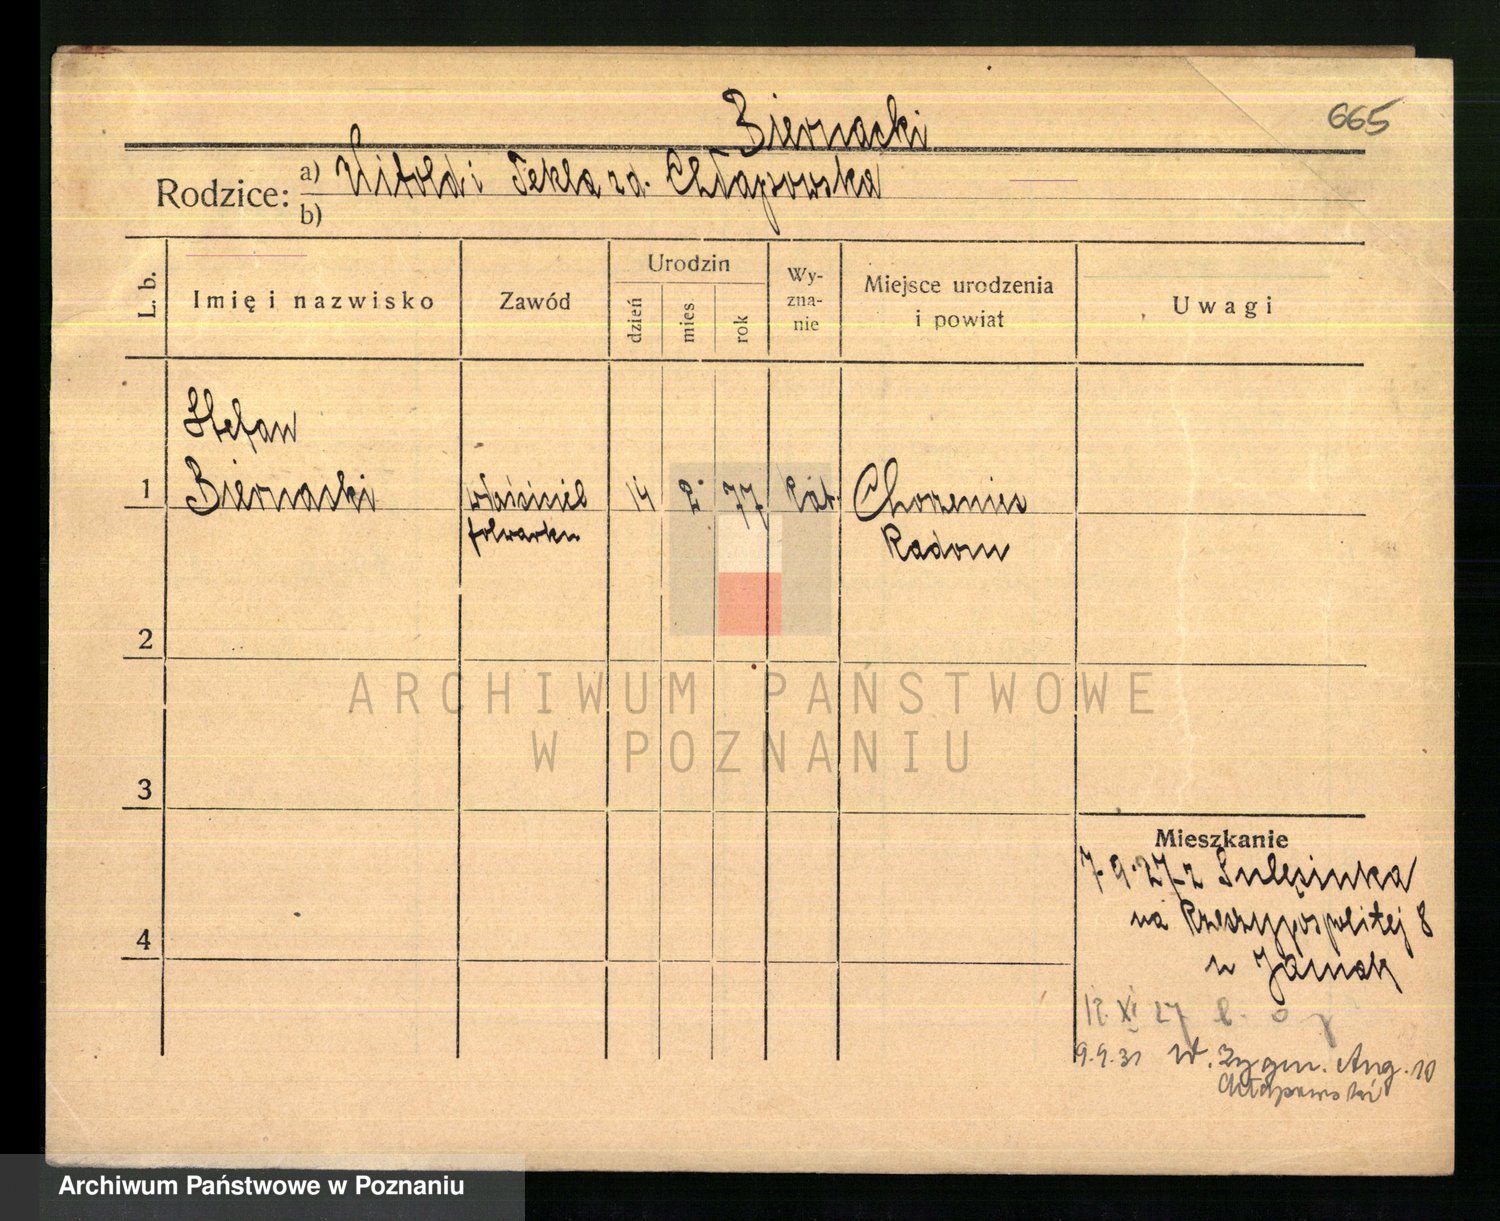 Biernacki
665
Rodzice:
a) Witold i Tekla zd. Chłapowska
b)
L. b.
Imię i nazwisko
Zawód
Urodzin
dzień
mies
rok
Wy-
zna-
nie
Miejsce urodzenia
i powiat
Uwagi
Stefan
1 Biernacki właściciel 14 2. 77 kat.
folwarku
Radom
2
3
4
ARCHIWUM PAŃSTWOWE
W POZNANIU
Mieszkanie
7.9.27 z Sulęcinka
na Rzeczypospolitej 8
12. XI 27
9.9.31 W. Zygm. Aug. 10
Chłapowski
Archiwum Państwowe w Poznaniu